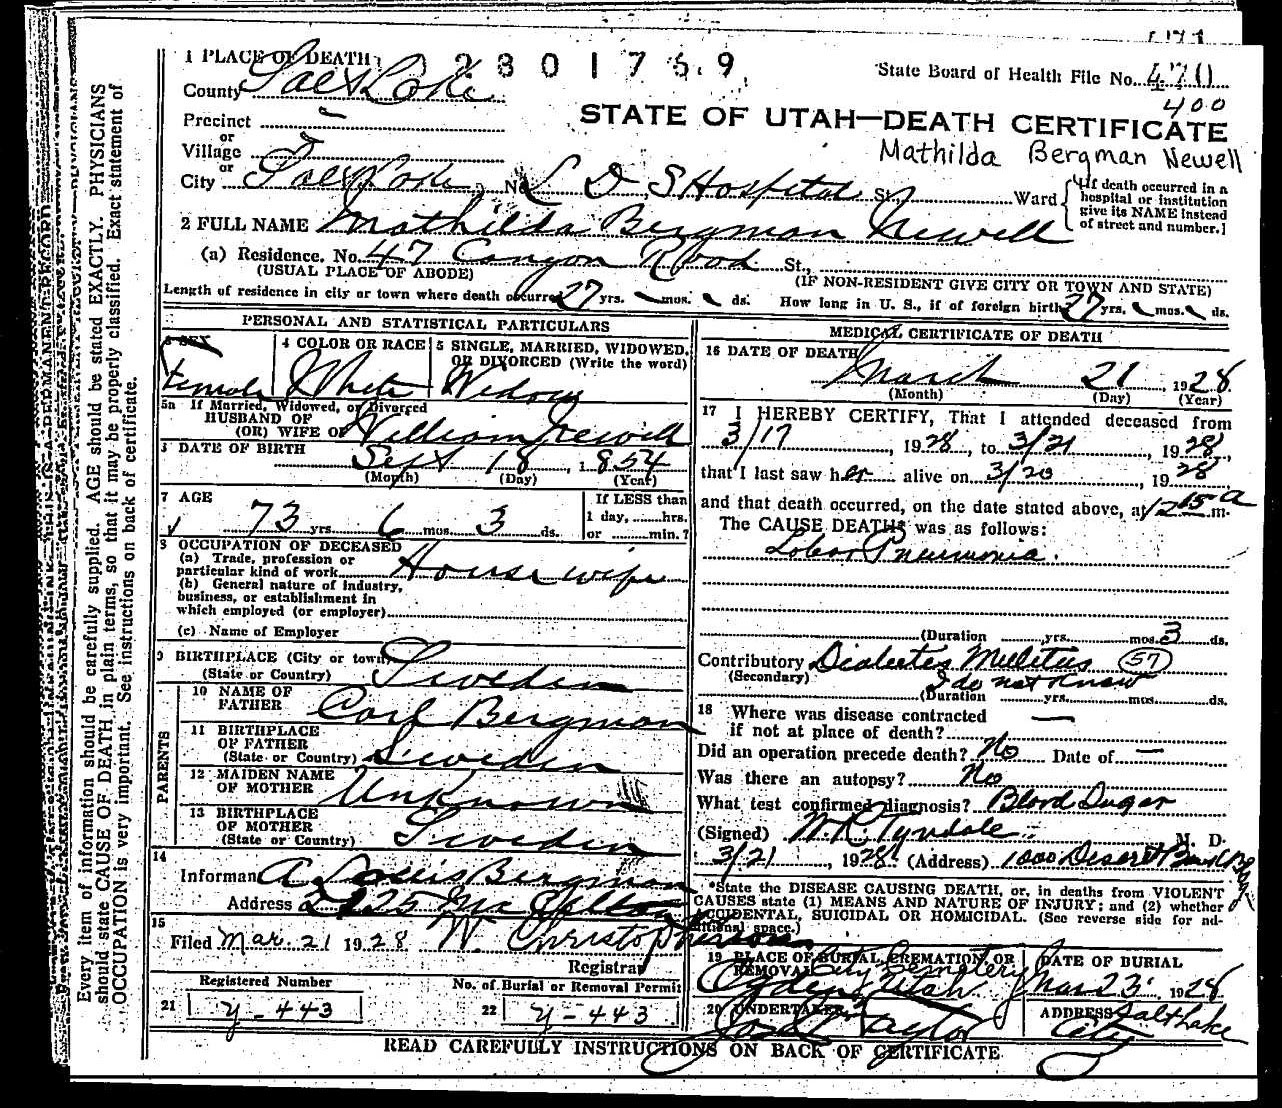 1 PLACE OF DEATH 2801769 State Board of Health File No. 470
County Salt Lake 400
STATE OF UTAH—DEATH CERTIFICATE
Precinct
or
Village
or
Mathilda Bergman Newell
City Salt Lake, No. L D S Hospital St. Ward
[If death occurred in a hospital or institution give its NAME instead of street and number.]
2 FULL NAME Mathilda Bergman Newell
(a) Residence. No. 47 Canyon Road St.,
(USUAL PLACE OF ABODE) (IF NON-RESIDENT GIVE CITY OR TOWN AND STATE)
Length of residence in city or town where death occurred 27 yrs. mos. ds. How long in U. S., if of foreign birth 27 yrs. mos. ds.
PERSONAL AND STATISTICAL PARTICULARS
3 SEX 4 COLOR OR RACE 5 SINGLE, MARRIED, WIDOWED, OR DIVORCED (Write the word)
Female White Widow
5a If Married, Widowed, or Divorced
HUSBAND OF
(OR) WIFE OF William Newell
DATE OF BIRTH
Sept 18, 1854
(Month) (Day) (Year)
7 AGE If LESS than
73 yrs. 6 mos. 3 ds. 1 day, hrs.
or min.?
8 OCCUPATION OF DECEASED
(a) Trade, profession or
particular kind of work Housewife
(b) General nature of industry,
business, or establishment in
which employed (or employer)
(c) Name of Employer
9 BIRTHPLACE (City or town)
(State or Country) Sweden
PARENTS
10 NAME OF
FATHER Carl Bergman
11 BIRTHPLACE
OF FATHER
(State or Country) Sweden
12 MAIDEN NAME
OF MOTHER Unknown
13 BIRTHPLACE
OF MOTHER
(State or Country) Sweden
14
Informant A Louis Bergman
Address
15
Filed Mar. 21 1928 W. Christopherson
Registrar
Registered Number No. of Burial or Removal Permit
21 Y-443 22 Y-443
MEDICAL CERTIFICATE OF DEATH
16 DATE OF DEATH
March 21, 1928
(Month) (Day) (Year)
17 I HEREBY CERTIFY, That I attended deceased from
3/17, 1928, to 3/21, 1928,
that I last saw her alive on 3/20, 1928
and that death occurred, on the date stated above, at 12 15 a m.
The CAUSE DEATH* was as follows:
Lobar Pneumonia.
(Duration yrs. mos. 3 ds.
Contributory Diabetes Mellitus 57
(Secondary) I do not know
(Duration yrs. mos. ds.
18 Where was disease contracted
if not at place of death?
Did an operation precede death? No Date of —
Was there an autopsy? No
What test confirmed diagnosis? Blood Sugar
(Signed) W.R. Tyndale M. D.
3/21, 1928 (Address) 1000 Deseret Bank Bldg
*State the DISEASE CAUSING DEATH, or, in deaths from VIOLENT
CAUSES state (1) MEANS AND NATURE OF INJURY; and (2) whether
ACCIDENTAL, SUICIDAL OR HOMICIDAL. (See reverse side for additional space.)
19 PLACE OF BURIAL, CREMATION, OR REMOVAL DATE OF BURIAL
City Cemetery
Ogden, Utah Mar 23 1928
20 UNDERTAKER ADDRESS Salt Lake
Taylor City
READ CAREFULLY INSTRUCTIONS ON BACK OF CERTIFICATE
Every item of information should be carefully supplied. AGE should be stated EXACTLY. PHYSICIANS
should state CAUSE OF DEATH in plain terms, so that it may be properly classified. Exact statement of
OCCUPATION is very important. See instructions on back of certificate.